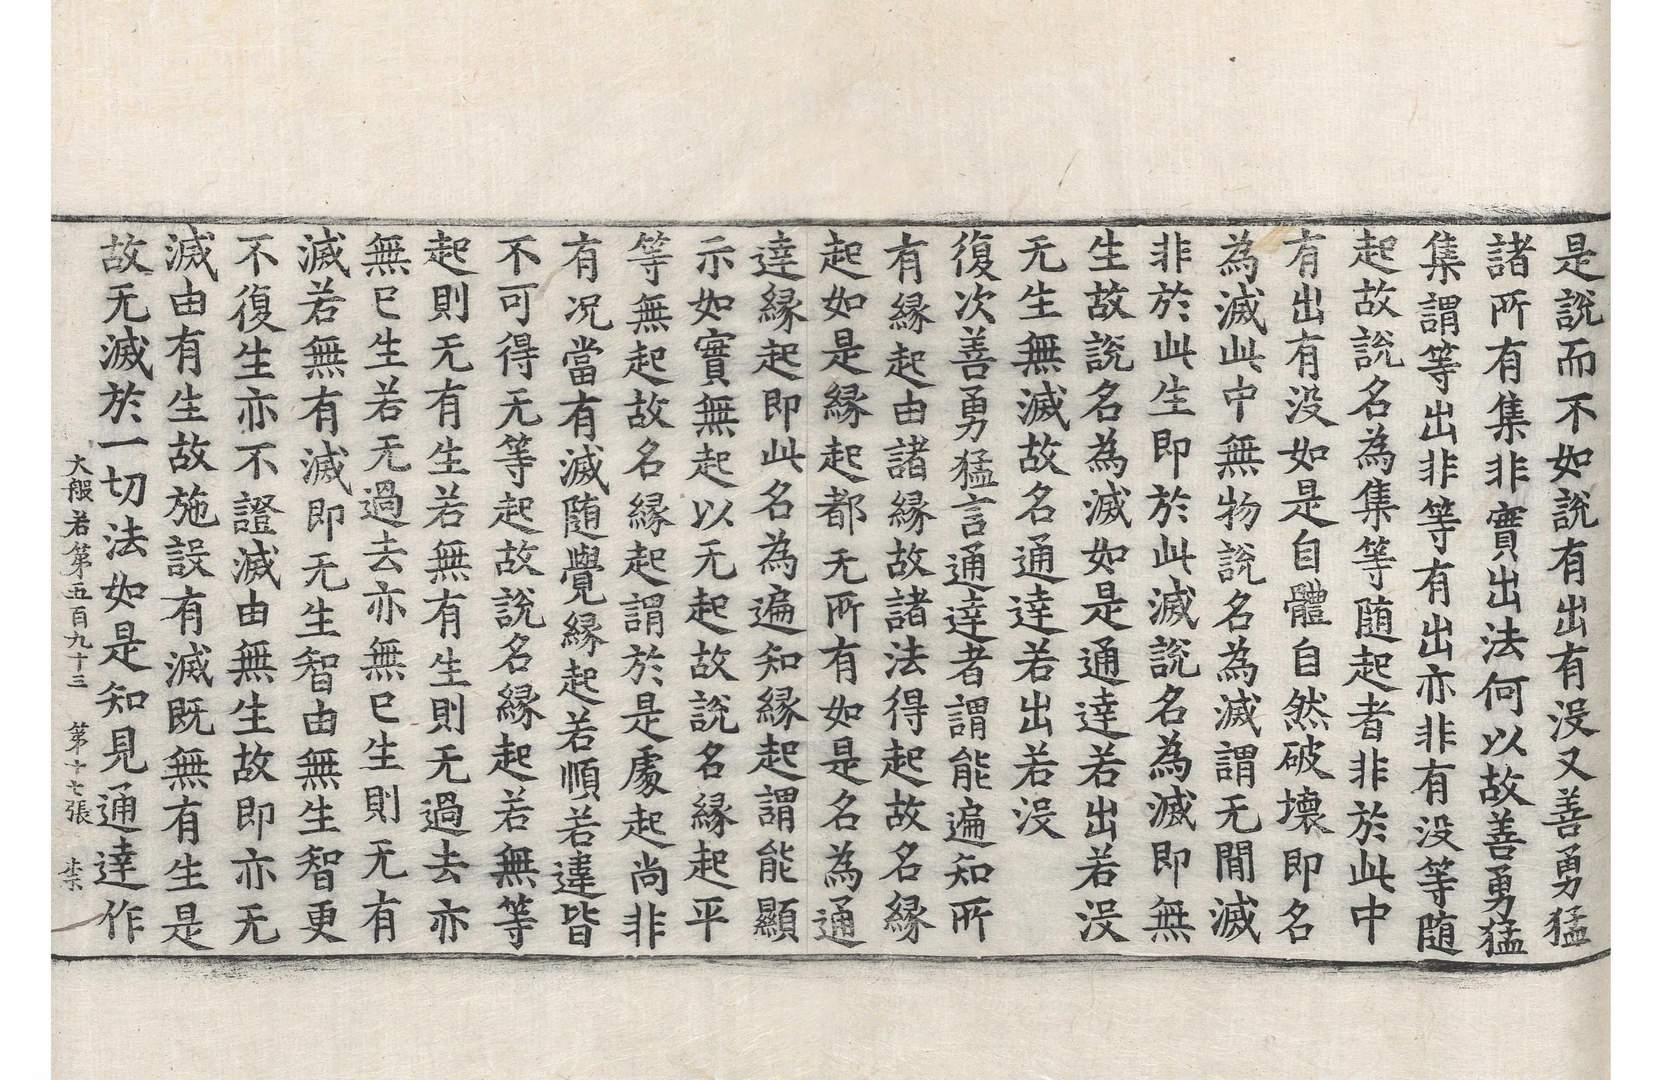 是說而不如說有出有没又善勇猛
諸所有集非實出法何以故善勇猛
集謂等出非等有出亦非有没等随
起故說名為集等随起者非於此中
有出有没如是自體自然破壞即名
為滅此中無物說名為滅謂无間滅
非於此生即於此滅說名為滅即無
生故說名為滅如是通達若出若没
无生無滅故名通達若出若没
復次善勇猛言通達者謂能遍知所
有縁起由諸縁故諸法得起故名縁
起如是縁起都无所有如是名為通
達縁起即此名為遍知縁起謂能顯
示如實無起以无起故說名縁起平
等無起故名縁起謂於是處起尚非
有况當有滅随覺縁起若順若違皆
不可得无等起故說名縁起若無等
起則无有生若無有生則无過去亦
無已生若无過去亦無已生則无有
滅若無有滅即无生智由無生智更
不復生亦不證滅由無生故即亦无
滅由有生故施設有滅既無有生是
故无滅於一切法如是知見通達作
大般若第五百九十三 第十七張 柰